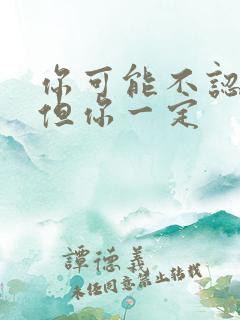 你可能不認
但你一定
譚德義
未任同意禁止轉載